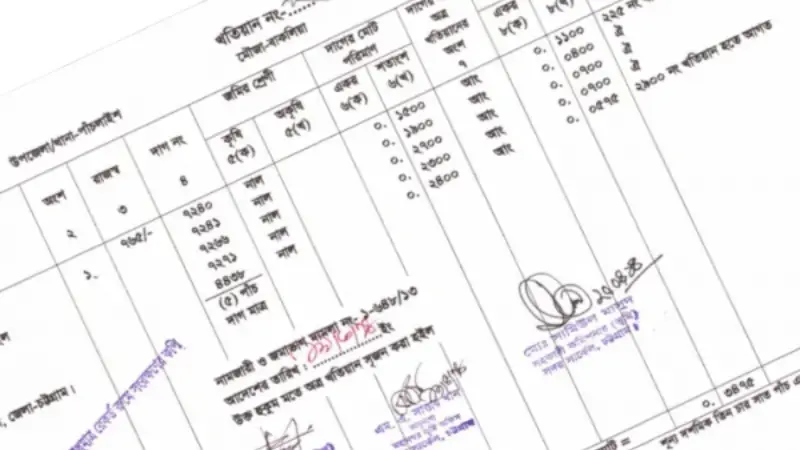 খতিয়ান নং-
মৌজা-বাকলিয়া
উপজেলা/থানা-পাঁচলাইশ
অংশ
রাজস্ব
দাগ নং
জমির শ্রেণী
দাগের মোট
পরিমাণ
দাগের
অত্র
খতিয়ানের
অংশ
একর
কৃষি
অকৃষি
একর
শতাংশ
২
৩
৪
৫(ক)
৫(খ)
৬(ক)
৬(খ)
৭
৮(ক)
৮(খ)
১.
৭৬৫/-
৭২৪০ নাল ০. ১৫০০ আং ০. ১১০০ ২২৫ নং
৭২৪১ নাল ০. ১৯০০ আং ০. ০৪০০ ঐ
৭২৬৬ নাল ০. ২৭০০ আং ০. ০৭০০ ঐ
৭২৭১ নাল ০. ২৩০০ আং ০. ০৭০০ ঐ
৪৪৩৮ নাল ০. ২৪০০ আং ০. ০৫৭৫ ২৯০০ নং খতিয়ান হতে আগত
(৫) পাঁচ
দাগ মাত্র
নামজারী ও জমাভাগ মামলা নং- ১-৬৪৮/১৩
আদেশের তারিখ : ইং
উক্ত হুকুম মতে অত্র খতিয়ান সৃজন করা হইল
সহকারী কমিশনার (ভূমি)
সদর সার্কেল, চট্টগ্রাম
, জেলা-চট্টগ্রাম।
০. ৩৪৭৫
শূন্য দশমিক তিন চার সাত পাঁচ